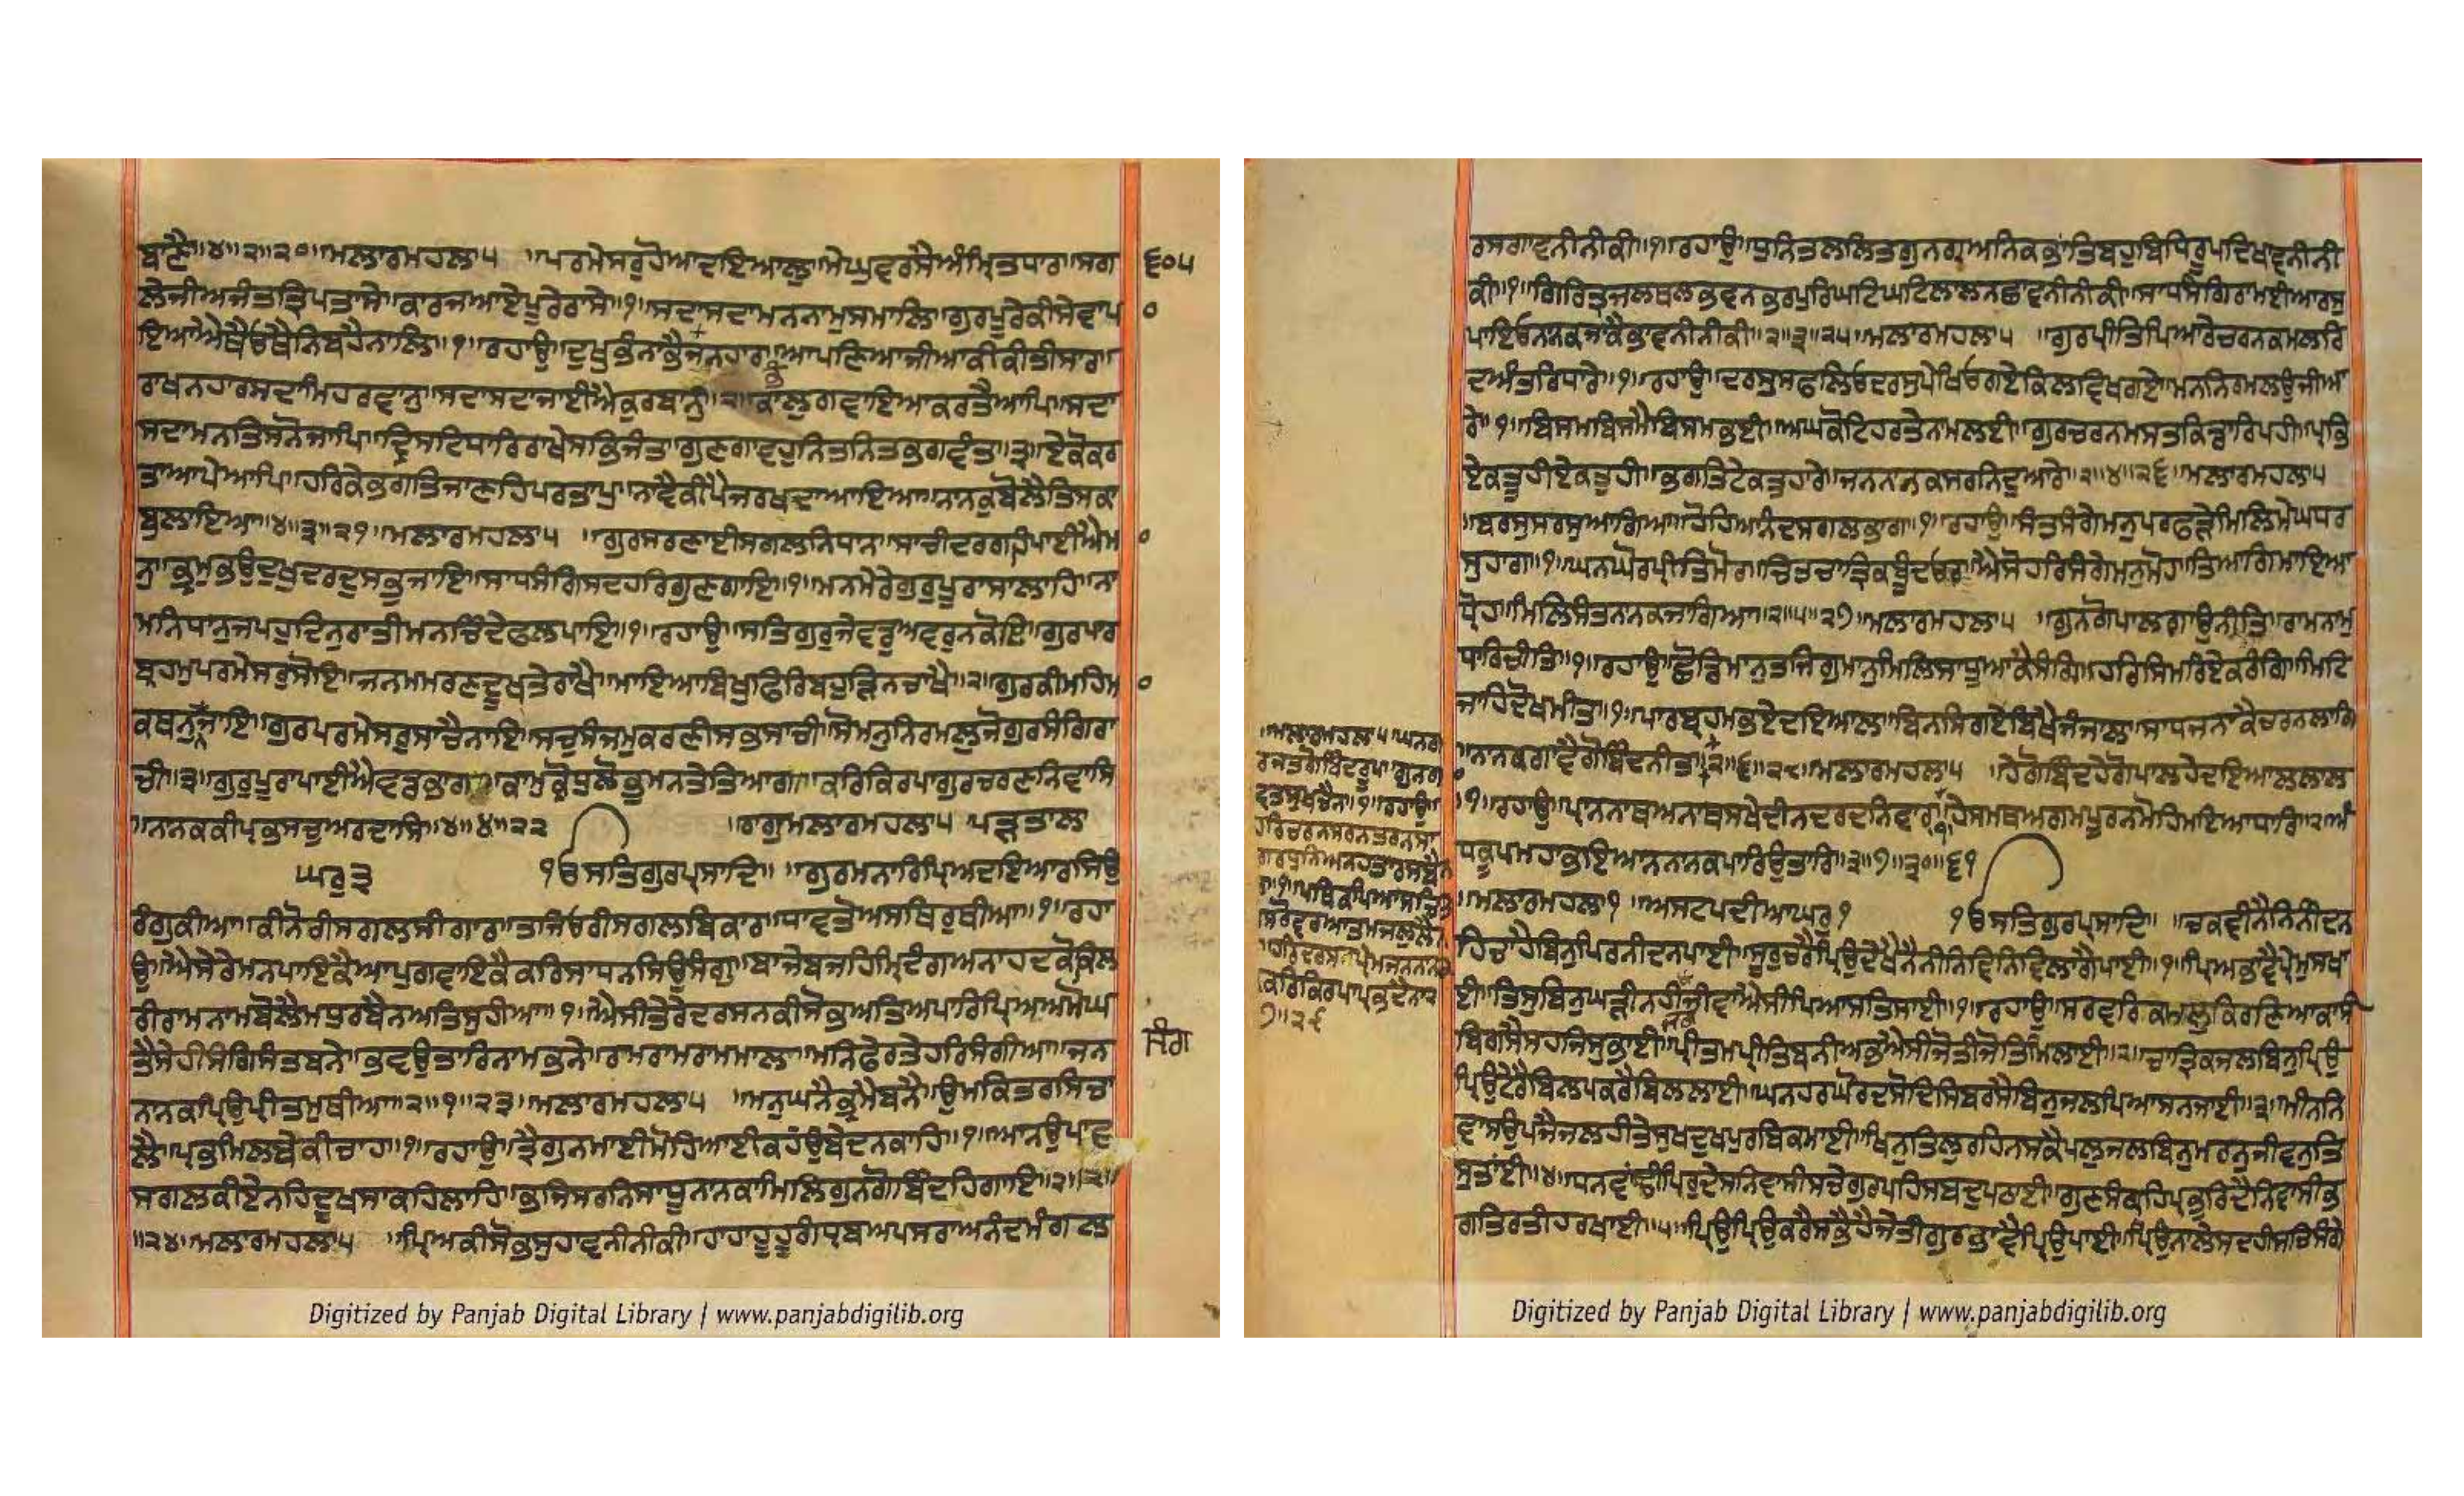 ਬਾਣੈ॥੪॥੨॥੨੦॥ਮਲਾਰਮਹਲਾ੫ ॥ਪਰਮੇਸਰੁਹੋਆਦਇਆਲੁ॥ਮੇਘੁਵਰਸੈਅੰਮ੍ਰਿਤਧਾਰ॥ਸਗ
੬੦੫
ਲੇਜੀਅਜੰਤਤ੍ਰਿਪਤਾਸੇ॥ਕਾਰਜਆਏਪੂਰੇਰਾਸੇ॥੧॥ਸਦਾਸਦਾਮਨਨਾਮੁਸਮਾਲਿ॥ਗੁਰਪੂਰੇਕੀਸੇਵਾਪਾ
ਇਆਐਥੈਓਥੈਨਿਬਹੈਨਾਲਿ॥੧॥ਰਹਾਉ॥ਦੁਖੁਭੰਨਾਭੈਭੰਜਨਹਾਰ॥ਆਪਣਿਆਜੀਆਕੀਕੀਤੀਸਾਰ॥
ਰਾਖਨਹਾਰਸਦਾਮਿਹਰਵਾਨੁ॥ਸਦਾਸਦਾਜਾਈਐਕੁਰਬਾਨੁ॥੨॥ਕਾਲੁਗਵਾਇਆਕਰਤੈਆਪਿ॥ਸਦਾ
ਸਦਾਮਨਤਿਸਨੋਜਾਪਿ॥ਦ੍ਰਿਸਟਿਧਾਰਿਰਾਖੇਸਭਿਜੰਤ॥ਗੁਣਗਾਵਹੁਨਿਤਨਿਤਭਗਵੰਤ॥੩॥ਏਕੋਕਰ
ਤਾਆਪੇਆਪਿ॥ਹਰਿਕੇਭਗਤਿਜਾਣਹਿਪਰਤਾਪ॥ਨਾਵੈਕੀਪੈਜਰਖਦਾਆਇਆ॥ਨਾਨਕੁਬੋਲੈਤਿਸਕਾ
ਬੁਲਾਇਆ॥੪॥੩॥੨੧॥ਮਲਾਰਮਹਲਾ੫ ॥ਗੁਰਸਰਣਾਈਸਗਲਨਿਧਾਨ॥ਸਾਚੀਦਰਗਹਿਪਾਈਐਮਾ
ਨੁ॥ਭ੍ਰਮੁਭਉਦੁਖੁਦਰਦੁਸਭੁਜਾਇ॥ਸਾਧਸੰਗਿਸਦਹਰਿਗੁਣਗਾਇ॥੧॥ਮਨਮੇਰੇਗੁਰੁਪੂਰਾਸਾਲਾਹਿ॥ਨਾ
ਮਨਿਧਾਨੁਜਪਹੁਦਿਨੁਰਾਤੀਮਨਚਿੰਦੇਫਲਪਾਇ॥੧॥ਰਹਾਉ॥ਸਤਿਗੁਰੁਜੇਵਡੁਅਵਰੁਨਕੋਇ॥ਗੁਰਪਾਰ
ਬ੍ਰਹਮੁਪਰਮੇਸਰੁਸੋਇ॥ਜਨਮਮਰਣਦੂਖਤੇਰਾਖੈ॥ਮਾਇਆਬਿਖੁਫਿਰਿਬਹੁੜਿਨਚਾਖੈ॥੨॥ਗੁਰਕੀਮਹਿਮਾ
ਕਥਨੁਨਜਾਇ॥ਗੁਰਪਰਮੇਸਰੁਸਾਚੈਨਾਇ॥ਸਚੁਸੰਜਮੁਕਰਣੀਸਭਸਾਚੀ॥ਸੋਮਨੁਨਿਰਮਲੁਜੋਗੁਰਸੰਗਿਰਾ
ਚੀ॥੩॥ਗੁਰੁਪੂਰਾਪਾਈਐਵਡਭਾਗ॥ਕਾਮੁਕ੍ਰੋਧੁਲੋਭੁਮਨਤੇਤਿਆਗ॥ਕਰਿਕਿਰਪਾਗੁਰਚਰਣਨਿਵਾਸਿ
॥ਨਾਨਕਕੀਪ੍ਰਭਸਚੁਅਰਦਾਸਿ॥੪॥੪॥੨੨ ॥ਰਾਗੁਮਲਾਰਮਹਲਾ੫ ਪੜਤਾਲ
ਘਰੁ੩ ੴਸਤਿਗੁਰਪ੍ਰਸਾਦਿ॥ ॥ਗੁਰਮਨਾਰਿਪ੍ਰਿਅਦਇਆਰਸਿਉ
ਰੰਗੁਕੀਆ॥ਕੀਨੋਰੀਸਗਲਸੀਗਾਰ॥ਤਜਿਓਰੀਸਗਲਬਿਕਾਰ॥ਧਾਵਤੋਅਸਥਿਰੁਥੀਆ॥੧॥ਰਹਾ
ਉ॥ਐਸੇਰੇਮਨਪਾਇਕੈਆਪੁਗਵਾਇਕੈਕਰਿਸਾਧਨਸਿਉਸੰਗੁ॥ਬਾਜੇਬਜਹਿਮ੍ਰਿਦੰਗਅਨਾਹਦਕੋਕਿਲ
ਰੀਰਾਮਨਾਮਬੋਲੈਮਧੁਰਬੈਨਅਤਿਸੁਹੀਆ॥੧॥ਐਸੀਤੇਰੇਦਰਸਨਕੀਸੋਭਅਤਿਅਪਾਰਪ੍ਰਿਅਅਮੋਘ
ਤੈਸੇਹੀਸੰਗਿਸੰਤਬਨੇ॥ਭਵਉਤਾਰਨਾਮਭਨੇ॥ਰਮਰਾਮਰਾਮਮਾਲ॥ਮਨਿਫੇਰਤੇਹਰਿਸੰਗੀਆ॥ਜਨ
ਸੰਗਿ
ਨਾਨਕਪ੍ਰਿਉਪ੍ਰੀਤਮੁਥੀਆ॥੨॥੧॥੨੩॥ਮਲਾਰਮਹਲਾ੫ ॥ਮਨੁਘਨੈਭ੍ਰਮੈਬਨੈ॥ਉਮਕਿਤਰਸਿਚਾ
ਲੈ॥ਪ੍ਰਭਮਿਲਬੇਕੀਚਾਹ॥੧॥ਰਹਾਉ॥ਤ੍ਰੈਗੁਨਮਾਈਮੋਹਿਆਈਕਹੰਉਬੇਦਨਕਾਹਿ॥੧॥ਆਨਉਪਾਵ
ਸਗਲਕੀਏਨਹਿਦੂਖਸਾਕਹਿਲਾਹਿ॥ਭਜੁਸਰਨਿਸਾਧੂਨਾਨਕਾਮਿਲੁਗੁਨਗੋਬਿੰਦਹਿਗਾਇ॥੨॥੨॥
॥੨੪॥ਮਲਾਰਮਹਲਾ੫ ॥ਪ੍ਰਿਅਕੀਸੋਭਸੁਹਾਵਨੀਨੀਕੀ॥ਹਾਹਾਹੂਹੂਗੰਧ੍ਰਬਅਪਸਰਾਅਨੰਦਮੰਗਲ
Digitized by Panjab Digital Library | www.panjabdigilib.org
ਰਸਗਾਵਨੀਨੀਕੀ॥੧॥ਰਹਾਉ॥ਧੁਨਿਤਲਲਿਤਗੁਨਗ੍ਯਅਨਿਕਭਾਂਤਿਬਹੁਬਿਧਿਰੂਪਦਿਖਾਵਨੀਨੀ
ਕੀ॥੧॥ਗਿਰਿਤਰਜਲਥਲਭਵਨਭਰਪੁਰਿਘਟਿਘਟਿਲਾਲਨਛਾਵਨੀਨੀਕੀ॥ਸਾਧਸੰਗਿਰਾਮਈਆਰਸੁ
ਪਾਇਓਨਾਨਕਜਾਕੈਭਾਵਨੀਨੀਕੀ॥੨॥੩॥੨੫॥ਮਲਾਰਮਹਲਾ੫ ॥ਗੁਰਪ੍ਰੀਤਿਪਿਆਰੇਚਰਨਕਮਲਰਿ
ਦਅੰਤਰਿਧਾਰੇ॥੧॥ਰਹਾਉ॥ਦਰਸੁਸਫਲਿਓਦਰਸੁਪੇਖਿਓਗਏਕਿਲਬਿਖਗਏ॥ਮਨਨਿਰਮਲਉਜੀਆ
ਰੇ॥੧॥ਬਿਸਮਬਿਸਮੈਬਿਸਮਭਈ॥ਅਘਕੋਟਿਹਰਤੇਨਾਮਲਈ॥ਗੁਰਚਰਨਮਸਤਕਿਡਾਰਿਪਹੀ॥ਪ੍ਰਭ
ਏਕਤੂਹੀਏਕਤੁਹੀ॥ਭਗਤਟੇਕਤੁਹਾਰੇ॥ਜਨਨਾਨਕਸਰਨਿਦੁਆਰੇ॥੨॥੪॥੨੬॥ਮਲਾਰਮਹਲਾ੫
॥ਬਰਸੁਸਰਸੁਆਗਿਆ॥ਹੋਹਿਆਨੰਦਸਗਲਭਾਗ॥੧॥ਰਹਾਉ॥ਸੰਤਸੰਗੇਮਨੁਪਰਫੜੈਮਿਲਿਮੇਘਧਰ
ਸੁਹਾਗ॥੧॥ਘਨਘੋਰਪ੍ਰੀਤਿਮੋਰ॥ਚਿਤਚਾਤ੍ਰਿਕਬੂੰਦਓਰ॥ਐਸੋਹਰਿਸੰਗੇਮਨੁਮੋਹ॥ਤਿਆਗਿਮਾਇਆ
ਧੋਹ॥ਮਿਲਿਸੰਤਨਾਨਕਜਾਗਿਆ॥੨॥੫॥੨੭॥ਮਲਾਰਮਹਲਾ੫ ॥ਗੁਨਗੋਪਾਲਗਾਉਨੀਤਿ॥ਰਾਮਨਾਮੁ
ਧਾਰਿਚੀਤਿ॥੧॥ਰਹਾਉ॥ਛੋਡਿਮਾਨੁਤਜਿਗੁਮਾਨੁਮਿਲਿਸਾਧੂਆਕੈਸੰਗਿ॥ਹਰਿਸਿਮਰਿਏਕਰੰਗਿ॥ਮਿਟਿ
ਜਾਹਿਦੋਖਮੀਤ॥੧॥ਪਾਰਬ੍ਰਹਮਭਏਦਇਆਲ॥ਬਿਨਸਿਗਏਬਿਖੈਜੰਜਾਲ॥ਸਾਧਜਨਾਕੈਚਰਨਲਾਗਿ
॥ਨਾਨਕਗਾਵੈਗੋਬਿੰਦਨੀਤ॥੨॥੬॥੨੮॥ਮਲਾਰਮਹਲਾ੫ ॥ਹੇਗੋਬਿੰਦਹੇਗੋਪਾਲਹੇਦਇਆਲਲਾਲ
॥੧॥ਰਹਾਉ॥ਪ੍ਰਾਨਨਾਥਅਨਾਥਸਖੇਦੀਨਦਰਦਨਿਵਾਰ॥੧॥ਹੇਸਮਥਅਗਮਪੂਰਨਮੋਹਿਮਇਆਧਾਰਿ॥੨॥ਅੰ
ਧਕੂਪਮਹਾਭਇਆਨਨਾਨਕਪਾਰਿਉਤਾਰਿ॥੩॥੭॥੩੦॥੬੧
॥ਮਲਾਰਮਹਲਾ੧ ॥ਅਸਟਪਦੀਆਘਰੁ੧ ੴਸਤਿਗੁਰਪ੍ਰਸਾਦਿ॥ ॥ਚਕਵੀਨੈਨਨੀਂਦਨ
ਹਿਚਾਹੈਬਿਨੁਪਿਰਨੀਂਦਨਪਾਈ॥ਸੂਰੁਚਰੈਪ੍ਰਿਉਦੇਖੈਨੈਨੀਨਿਵਿਨਿਵਿਲਾਗੈਪਾਈ॥੧॥ਪ੍ਰਿਅਭਾਵੈਪ੍ਰੇਮੁਸਖਾ
ਈ॥ਤਿਸੁਬਿਨੁਘੜੀਨਹੀਜਗਿਜੀਵਾਐਸੀਪਿਆਸਤਿਸਾਈ॥੧॥ਰਹਾਉ॥ਸਰਵਰਿਕਮਲੁਕਿਰਣਿਆਕਾਸੀ
ਬਿਗਸੈਸਹਜਿਸੁਭਾਈ॥ਪ੍ਰੀਤਮਪ੍ਰੀਤਿਬਨੀਅਭਐਸੀਜੋਤੀਜੋਤਿਮਿਲਾਈ॥੨॥ਚਾਤ੍ਰਿਕਜਲਬਿਨੁਪ੍ਰਿਉ
ਪ੍ਰਿਉਟੇਰੈਬਿਲਪਕਰੈਬਿਲਲਾਈ॥ਘਨਹਰਘੋਰਦਸੋਦਿਸਿਬਰਸੈਬਿਨੁਜਲਪਿਆਸਨਜਾਈ॥੩॥ਮੀਨਨਿ
ਵਾਸਉਪਜੈਜਲਹੀਤੇਸੁਖਦੁਖਪੁਰਬਿਕਮਾਈ॥ਖਿਨੁਤਿਲੁਰਹਿਨਸਕੈਪਲੁਜਲਬਿਨੁਮਰਨੁਜੀਵਨੁਤਿ
ਸੁਤਾਂਈ॥੪॥ਧਨਵਾਂਢੀਪਿਰੁਦੇਸਨਿਵਾਸੀਸਚੇਗੁਰਪਹਿਸਬਦੁਪਠਾਈ॥ਗੁਣਸੰਗ੍ਰਹਿਪ੍ਰਭੁਰਿਦੈਨਿਵਾਸੀਭ
ਗਤਿਰਤੀਹਰਖਾਈ॥੫॥ਪ੍ਰਿਉਪ੍ਰਿਉਕਰੈਸਭੈਹੈਜੇਤੀਗੁਰਭਾਵੈਪ੍ਰਿਉਪਾਈ॥ਪ੍ਰਿਉਨਾਲੇਸਦਹੀਸਚਿਸੰਗੇ
॥ਮਲਾਰਮਹਲਾ੫ ਘਨਗ
ਰਜਤਗੋਬਿੰਦਰੂਪ॥ਗੁਨਗਾ
ਵਤਸੁਖਚੈਨ॥੧॥ਰਹਾਉ॥
ਹਰਿਚਰਨਸਰਨਤਰਨਸਾ
ਗਰਧੁਨਿਅਨਹਤਾਰਸਬੈਨ
॥੧॥ਪਥਿਕਪਿਆਸਚਿਤ
ਸਰੋਵਰਆਤਮਜਲੁਲੈਨ
॥ਹਰਿਦਰਸਪ੍ਰੇਮਜਨਨਾਨਕ
ਕਰਿਕਿਰਪਾਪ੍ਰਭਦੈਨ॥੨
੭॥੨੯
Digitized by Panjab Digital Library | www.panjabdigilib.org